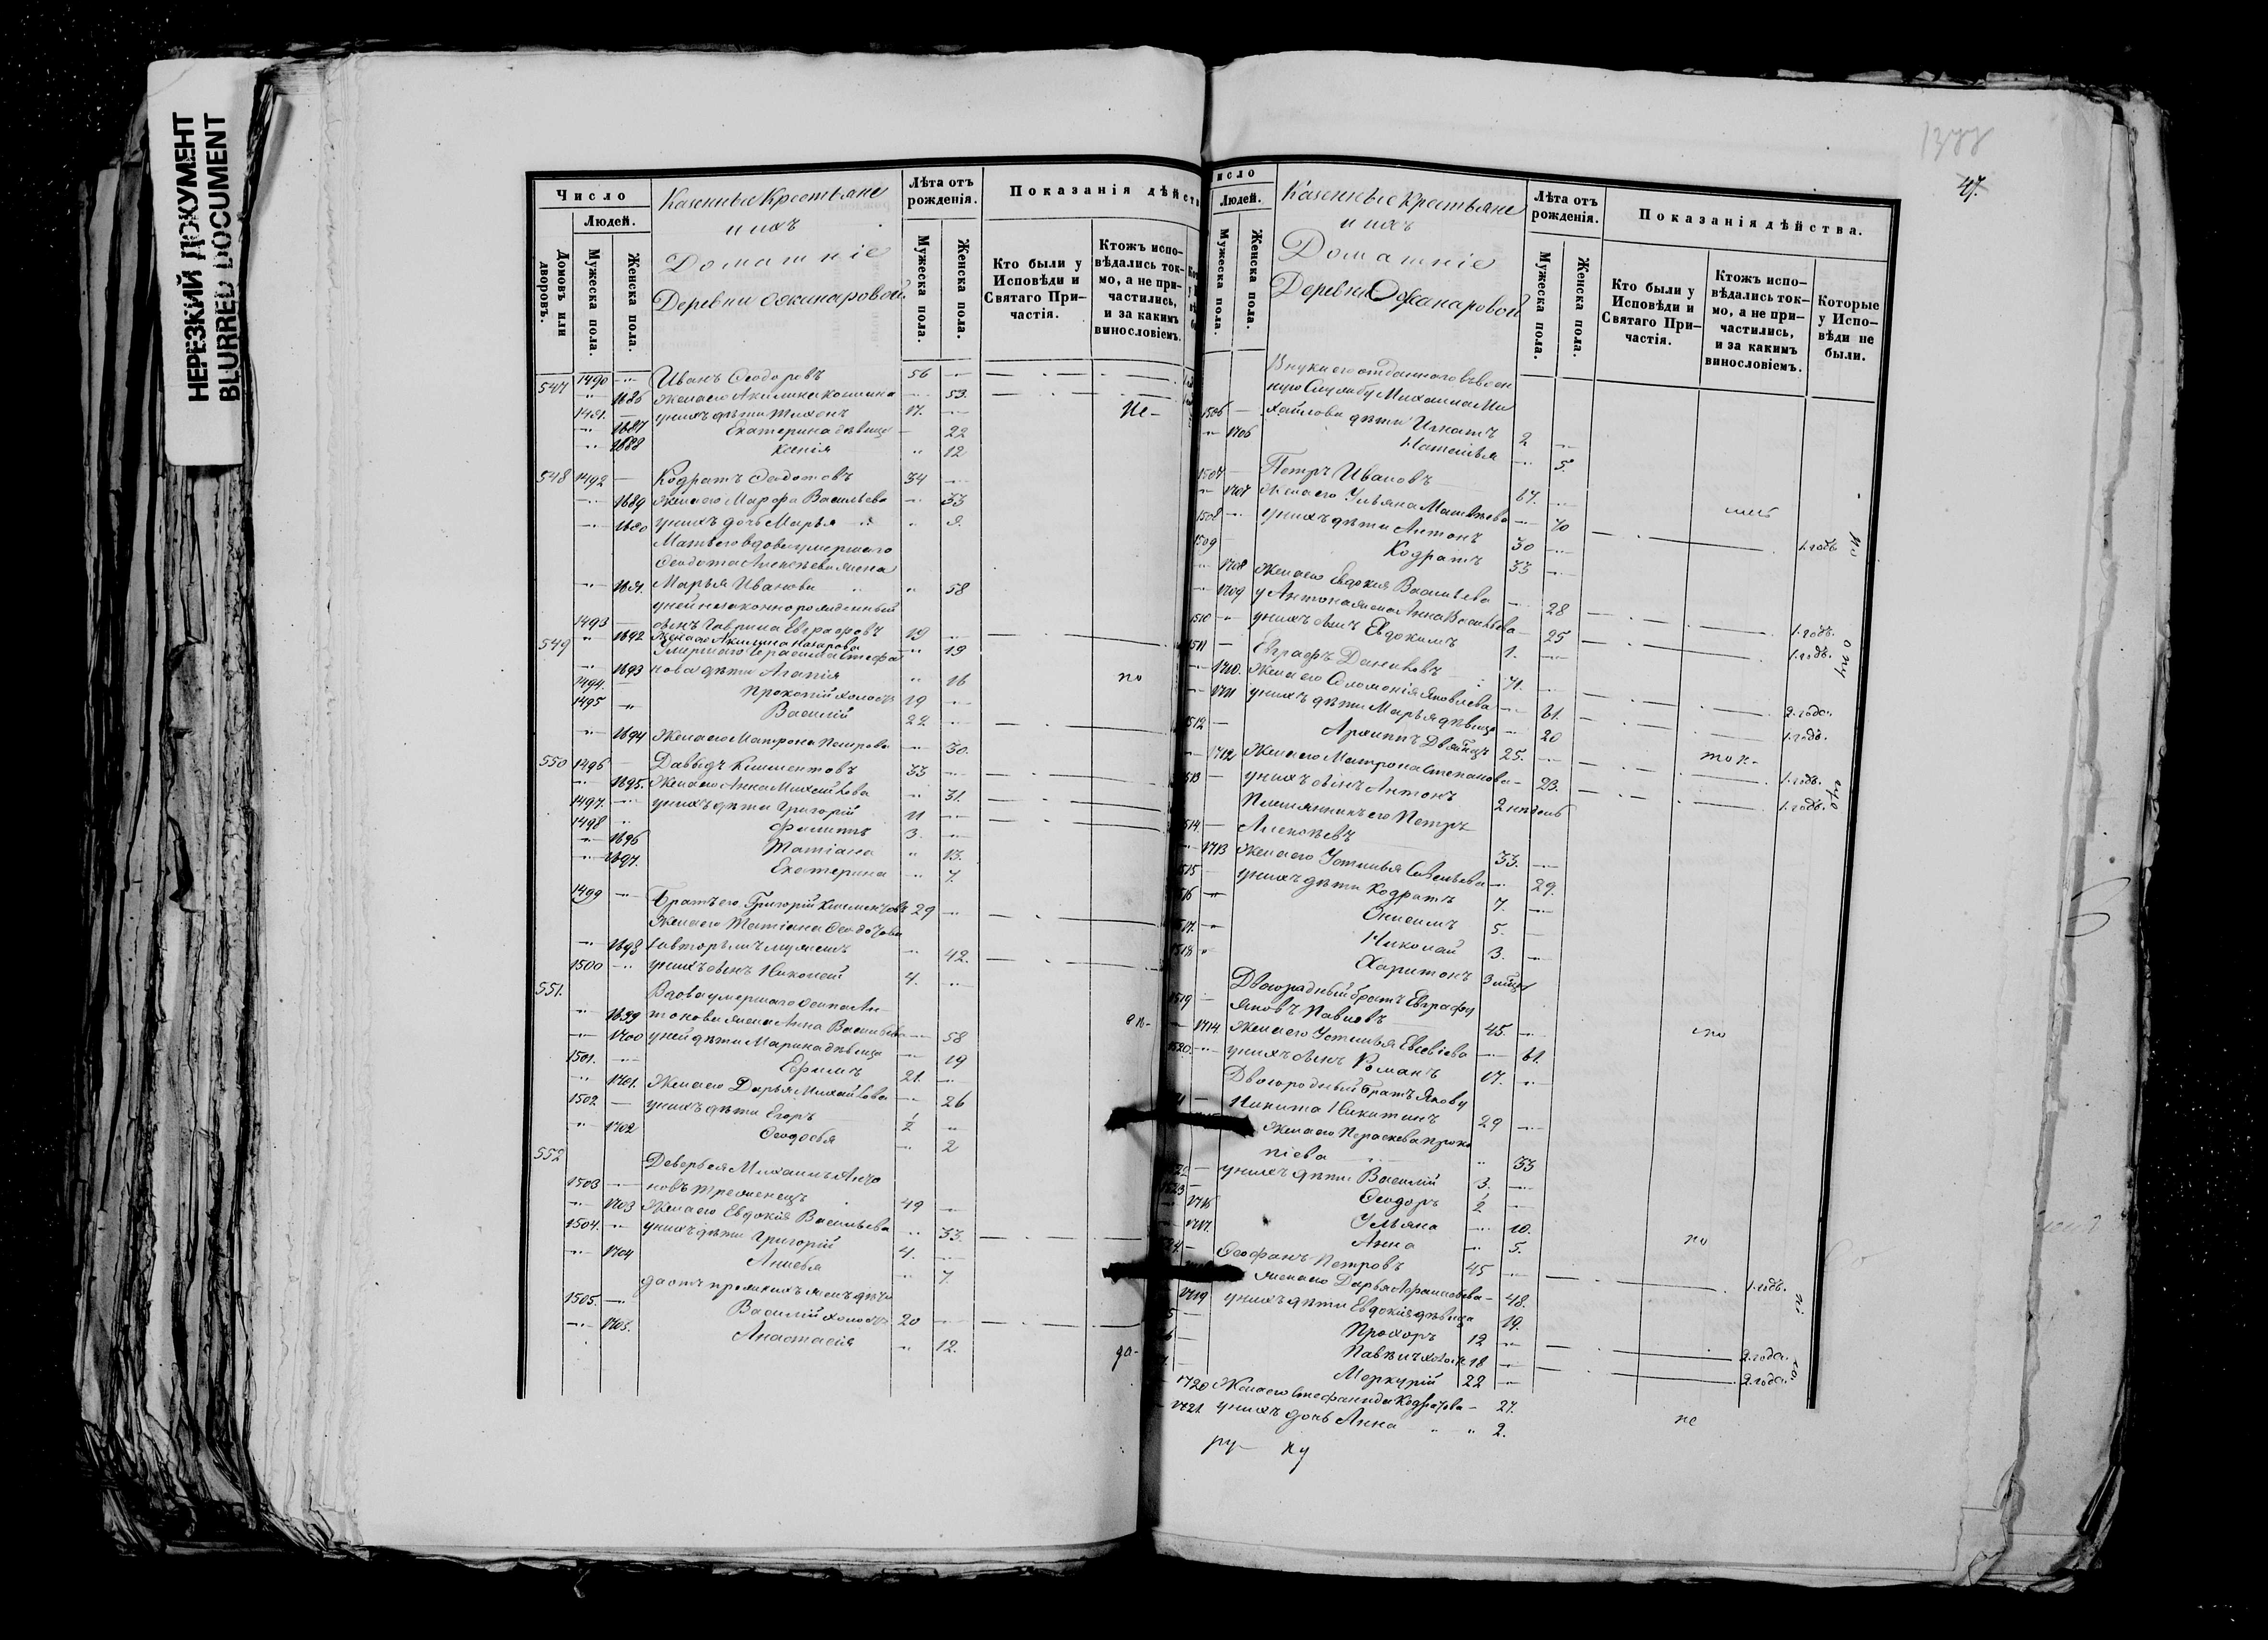 НЕРЕЗКИЙ ДОКУМЕНТ
BLURRED DOCUMENT
Число
Людей.
Домовъ или дворовъ.
Мужеска пола.
Женска пола.
Казенные Крестьяне
и ихъ
Домашніе
Деревни
Лѣта отъ рожденія.
Мужеска пола.
Женска пола.
Показанія дѣйств
Кто были у Исповѣди и Святаго Причастія.
Ктожъ исповѣдались токмо, а не причастились, и за какимъ винословіемъ.
547 1490 Иванъ Ѳеодоровъ 56
1686 Жена его Акилина 53.
1491. у нихъ дѣти Тихонъ 17.
1687 Екатерина дѣвица 22
1688 Ксенія 12
548 1492 Кодратъ Ѳеодотовъ 34
1689 Жена его Марфа Васильева 33
1690 у нихъ дочь Марья 9.
Мать его вдова умершаго
Ѳеодота Алексѣева жена
1691. Марья Иванова 58
у ней незаконнорожденный
1493 сынъ Гаврила Евграфовъ 19
1692 Жена его Акилина Назарова 19
549 Умершаго Герасима Стефа
1693 нова дѣти Агапія 16
1494. Прокопій холостъ 19
1495 Василій 22
1694 Жена его Матрона Петрова 30.
550 1496 Давыдъ Климентовъ 33
1695. Жена его Анна Михайлова 31.
1497. у нихъ дѣти Григорій 11
1498 Филиппъ 3.
1696 Татіана 13.
1697. Екатерина 7.
1499 Братъ его Григорій Климентовъ 29
Жена его Татіана Ѳеодотова
1698 вторымъ мужемъ 42.
1500 у нихъ сынъ Николай 4.
551. Вдова умершаго Осипа Ан-
1699 тонова жена Анна Васильева 58
1700 у ней дѣти Марина дѣвица 19
1501. Ефимъ 21.
1701. Жена его Дарья Михайлова 26
1502 у нихъ дѣти Егоръ ½
1702 Ѳеодосья 2
552 Деверь ея Михаилъ Анто
1503 новъ троеженецъ 49
1703 Жена его Евдокія Васильева 33.
1504. у нихъ дѣти Григорій 4.
1704 Анисья 7.
да отъ прежнихъ женъ дѣти
1505. Василій холостъ 20
1705. Анастасія 12.
1377
47.
исло
Людей.
Мужеска пола.
Женска пола.
Казенные Крестьяне
и ихъ
Домашніе
Деревни
Лѣта отъ рожденія.
Мужеска пола.
Женска пола.
Показанія дѣйства.
Кто были у Исповѣди и Святаго Причастія.
Ктожъ исповѣдались токмо, а не причастились, и за какимъ винословіемъ.
Которые у Исповѣди не были.
Внуки его отданнаго въ воен
ную Службу Михаила Ми
1506 хайлова дѣти Игнатъ 2
1706 Наталья 5.
1507 Петръ Ивановъ 67.
1707 Жена его Ульяна Матвѣева 70 1. годъ
1508 у нихъ дѣти Антонъ 30
1509 Кодратъ 33
1708 Жена его Евдокія Васильева 28 1. годъ.
1709 у Антона жена Анна Васильева 25 1. годъ.
1510 у нихъ сынъ Евдокимъ 1.
1511 Евграфъ Даниловъ 71. 2. года.
1710. Жена его Соломонія Яковлева 61. 1. годъ.
1711 у нихъ дѣти Марья дѣвица 20
1512 Архиппъ Двоеженецъ 25. 1. годъ.
1712 Жена его Матрона Степанова 23. 1. годъ.
1513 у нихъ сынъ Антонъ 2 недѣль
Племянникъ его Петръ
1514. Алексѣевъ 33.
1713 Жена его Устинья Савельева 29.
1515 у нихъ дѣти Кодратъ 7.
1516 Онисимъ 5.
1517. Николай 3.
1518 Харитонъ
Двоюродный братъ Евграфу
1519 Яковъ Павловъ 45.
1714 Жена его Устинья Евсевіева 61.
1520. у нихъ сынъ Романъ 17.
Двоюродный братъ Якову
Никита Никитинъ 29
Жена его Параскева Проко
піева 33
у нихъ дѣти Василій 3.
1523 Ѳеодоръ ½
1716 Ульяна 10.
1717. Анна 5.
Ѳеофанъ Петровъ 45 1. годъ.
жена его Дарья Афанасьева 48.
1719 у нихъ дѣти Евдокія дѣвица 19.
Прохоръ 12
Павелъ холостъ 18 2. года.
Меркурій 22 2. года.
1720 Жена его Стефанида Кодратова 27.
1721. у нихъ дочь Анна 2.